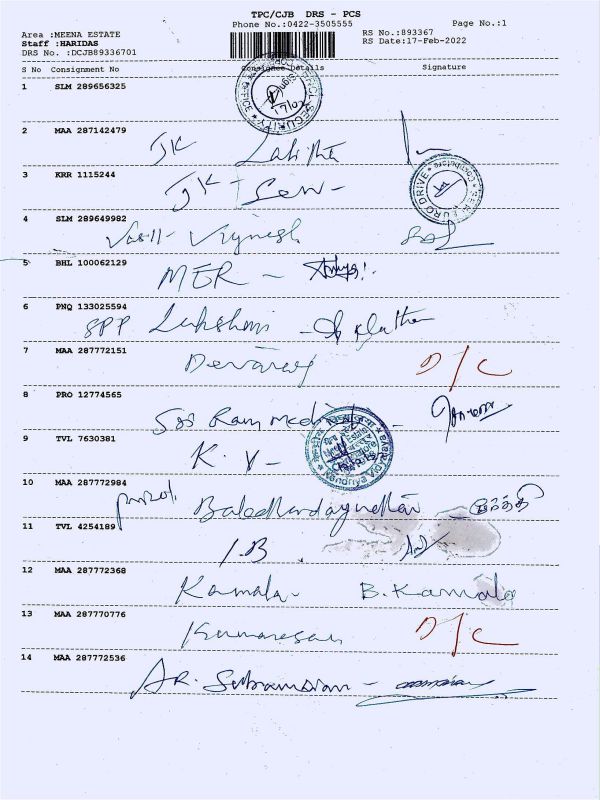 TPC/CJB DRS - PCS
Phone No.:0422-3505555 Page No.:1
Area :MEENA ESTATE RS No.:893367
Staff :HARIDAS RS Date:17-Feb-2022
DRS No. :DCJB89336701
S No Consignment No Consignee Details Signature
1 SLM 289656325
2 MAA 287142479
JK Lalitha
3 KRR 1115244
JK - Sew -
4 SLM 289649982
Vignesh
5 BHL 100062129
MER -
6 PNQ 133025594
SPP Lakshmi -
7 MAA 287772151
Devaraj D/C
8 PRO 12774565
Sri Ram Medical -
9 TVL 7630381
K. V -
10 MAA 287772984
11 TVL 4254189
I.B
12 MAA 287772368
Kamala - B. Kamala
13 MAA 287770776
Kumaresan D/C
14 MAA 287772536
AR. Subramanian -